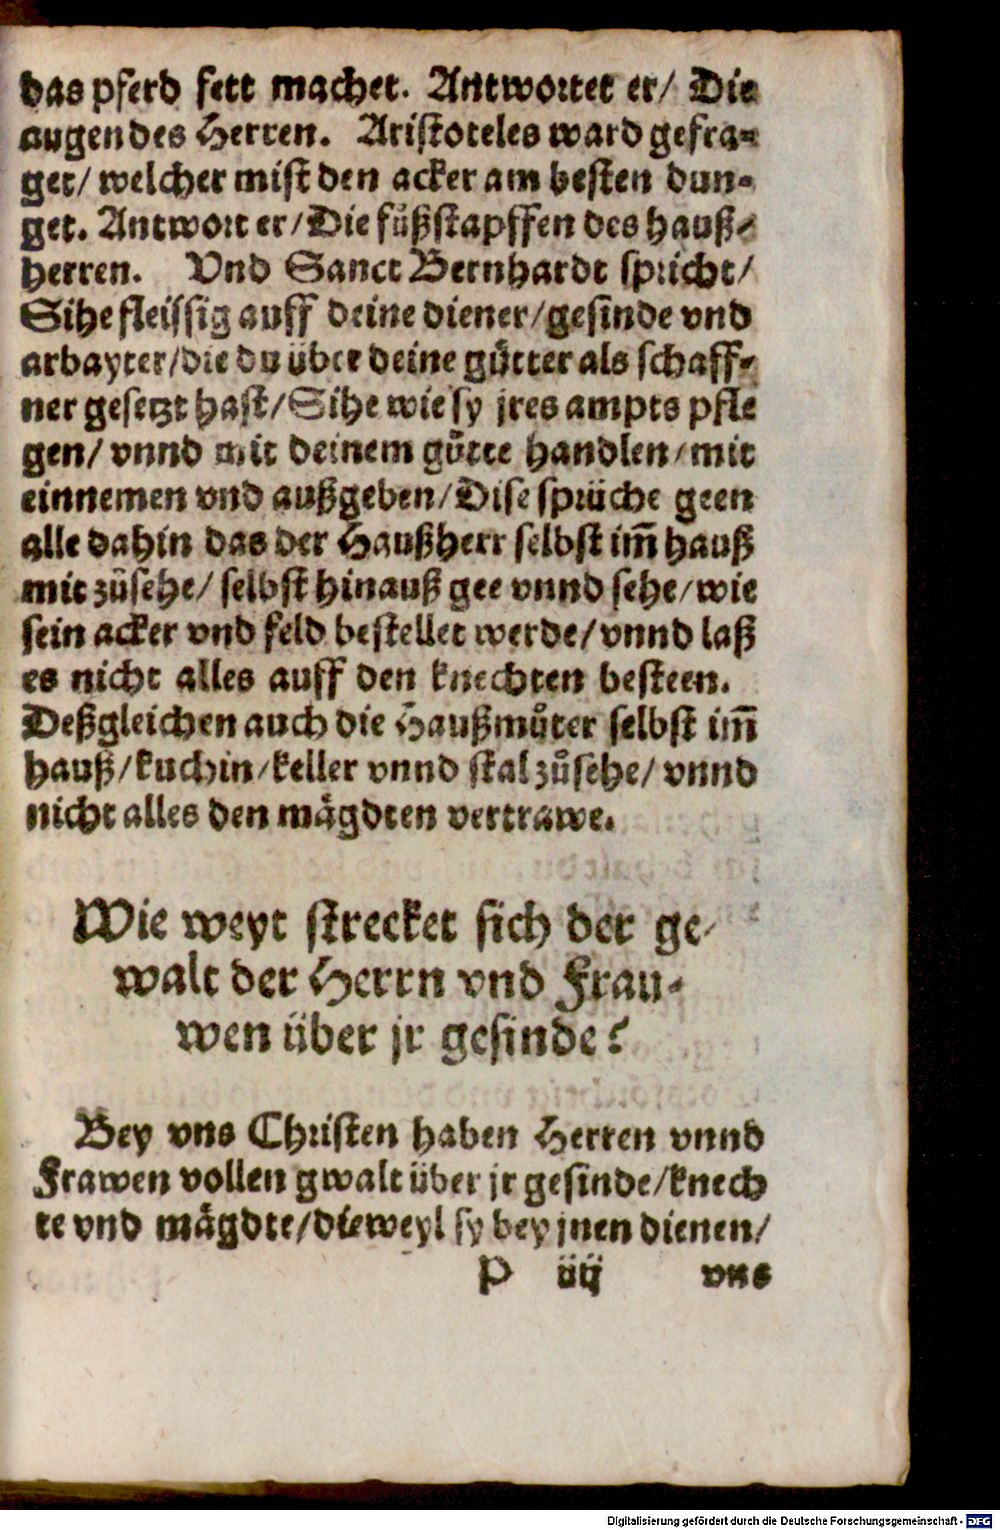 das pferd fett machet. Antwortet er/ Die
augen des Herren. Aristoteles ward gefra-
get/ welcher mist den acker am besten dun-
get. Antwort er/ Die füßstapffen des hauß-
herren. Vnd Sanct Bernhardt spricht/
Sihe fleissig auff deine diener/ gesinde vnd
arbayter/ die du über deine gůtter als schaff-
ner gesetzt hast/ Sihe wie sy jres ampts pfle
gen/ vnnd mit deinem gůtte handlen/ mit
einnemen vnd außgeben/ Dise sprüche geen
alle dahin das der Haußherr selbst im̃ hauß
mit zůsehe/ selbst hinauß gee vnnd sehe/ wie
sein acker vnd feld bestellet werde/ vnnd laß
es nicht alles auff den knechten besteen.
Deßgleichen auch die Haußmůter selbst im̃
hauß/ kuchin/ keller vnnd stal zůsehe/ vnnd
nicht alles den mågdten vertrawe.
Wie weyt strecket sich der ge-
walt der Herrn vnd Frau-
wen über jr gesinde?
Bey vns Christen haben Herren vnnd
Frawen vollen gwalt über jr gesinde/ knech
te vnd mågdte/ dieweyl sy bey jnen dienen/
P iiij vns
Digitalisierung gefördert durch die Deutsche Forschungsgemeinschaft - DFG